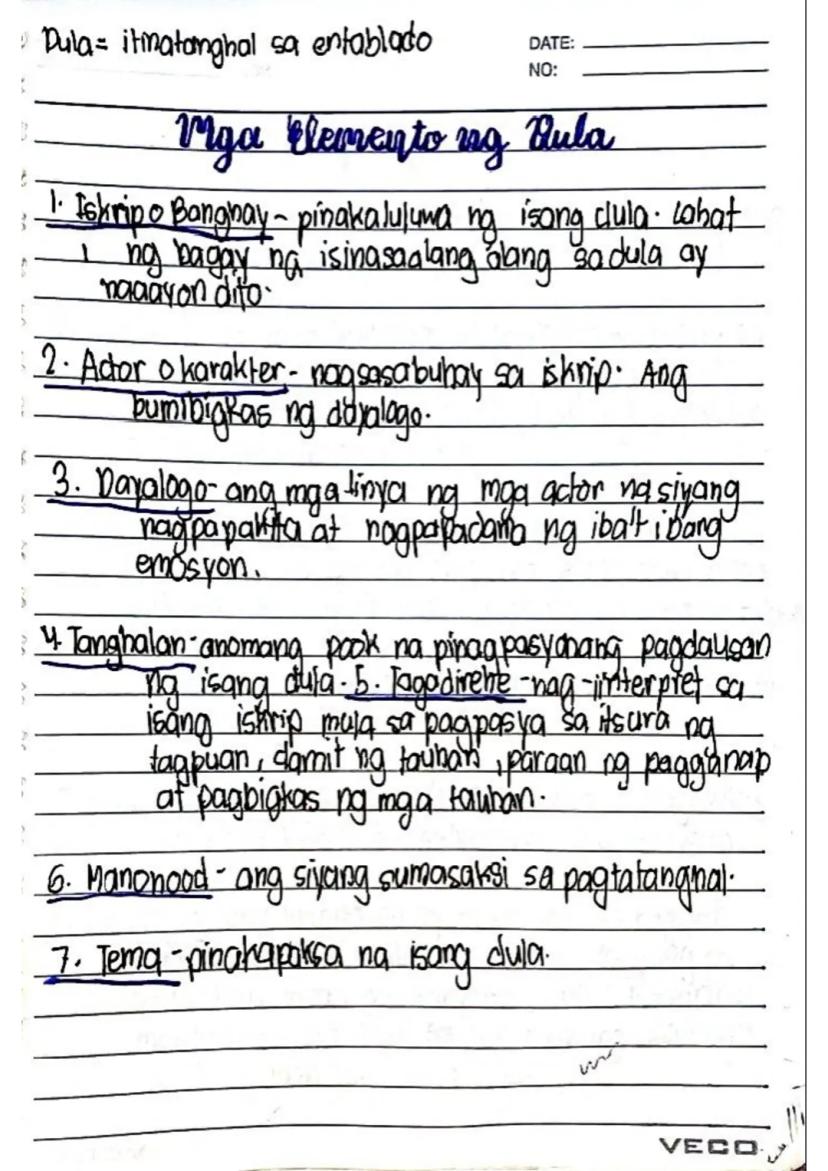 Dula= itinatanghal sa entablado
DATE:
NO:
Mga Elemento ng Dula
1. Iskrip o Banghay - pinakaluluwa ng isang dula. Lahat
ng bagay na isinasaalang alang sa dula ay
naaayon dito.
2. Actor o karakter - nagsasabuhay sa iskrip. Ang
bumibigkas ng dayalogo.
3. Dayalogo - ang mga linya ng mga actor na siyang
nagpapakita at nagpapadama ng iba't ibang
emosyon.
4. Tanghalan - anomang pook na pinagpasyanang pagdausan
ng isang dula. 5. Tagadirehe - nag-iinterpret sa
isang iskrip mula sa pagpasya sa itsura ng
tagpuan, damit ng tauhan, paraan ng pagganap
at pagbigkas ng mga tauhan.
6. Manonood - ang siyang sumasaksi sa pagtatanghal.
7. Tema - pinakapaksa na isang dula.
VECO